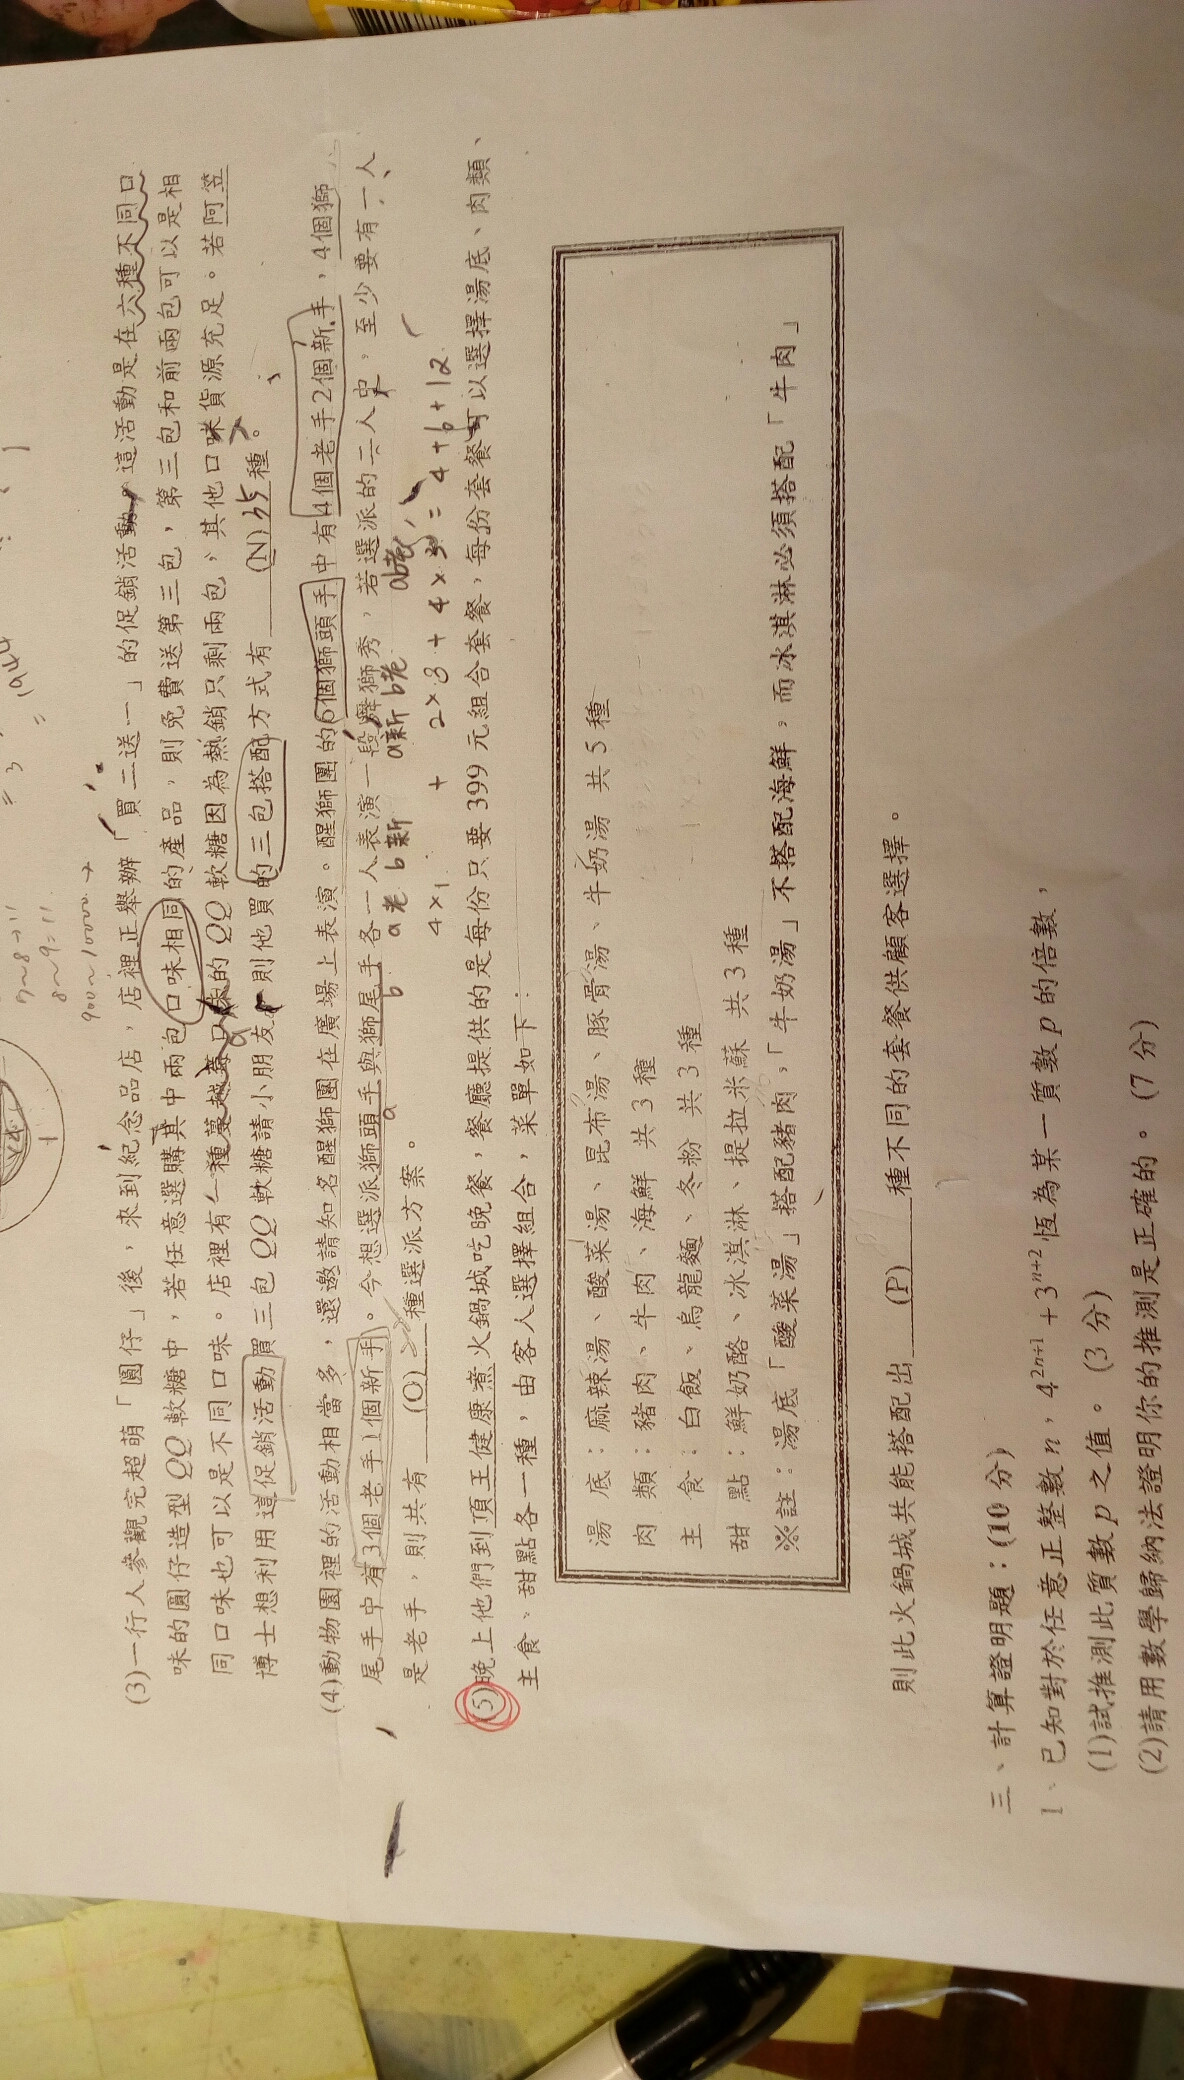 (3)一行人參觀完超萌「圓仔」後，來到紀念品店，店裡正舉辦「買二送一」的促銷活動。這活動是在六種不同口
味的圓仔造型QQ軟糖中，若任意選購其中兩包口味相同的產品，則免費送第三包，第三包和前兩包可以是相
同口味也可以是不同口味。店裡有一種蔓越莓口味的QQ軟糖因為熱銷只剩兩包，其他口味貨源充足。若阿笠
博士想利用這促銷活動買三包QQ軟糖請小朋友，則他買的三包搭配方式有 (N) 35 種。
(4)動物園裡的活動相當多，還邀請知名醒獅團在廣場上表演。醒獅團的6個獅頭手中有4個老手2個新手，4個獅
尾手中有3個老手1個新手。今想選派獅頭手與獅尾手各一人表演一段舞獅秀，若選派的二人中，至少要有一人
a b a老 b新 a新 b老 ab老
是老手，則共有 (O) 種選派方案。
4×1 + 2×3 + 4×3 = 4+6+12
(5)晚上他們到頂王健康煮火鍋城吃晚餐，餐廳提供的是每份只要399元組合套餐，每份套餐可以選擇湯底、肉類、
主食、甜點各一種，由客人選擇組合，菜單如下：
湯 底：麻辣湯、酸菜湯、昆布湯、豚骨湯、牛奶湯 共5種
肉 類：豬肉、牛肉、海鮮 共3種
主 食：白飯、烏龍麵、冬粉 共3種
甜 點：鮮奶酪、冰淇淋、提拉米蘇 共3種
※註：湯底「酸菜湯」搭配豬肉，「牛奶湯」不搭配海鮮，而冰淇淋必須搭配「牛肉」
則此火鍋城共能搭配出 (P) 種不同的套餐供顧客選擇。
三、計算證明題：(10分)
1、已知對於任意正整數n，4^{2n+1}+3^{n+2}恆為某一質數p的倍數，
(1)試推測此質數p之值。(3分)
(2)請用數學歸納法證明你的推測是正確的。(7分)
7~8→11
8~9=11
900~10000→